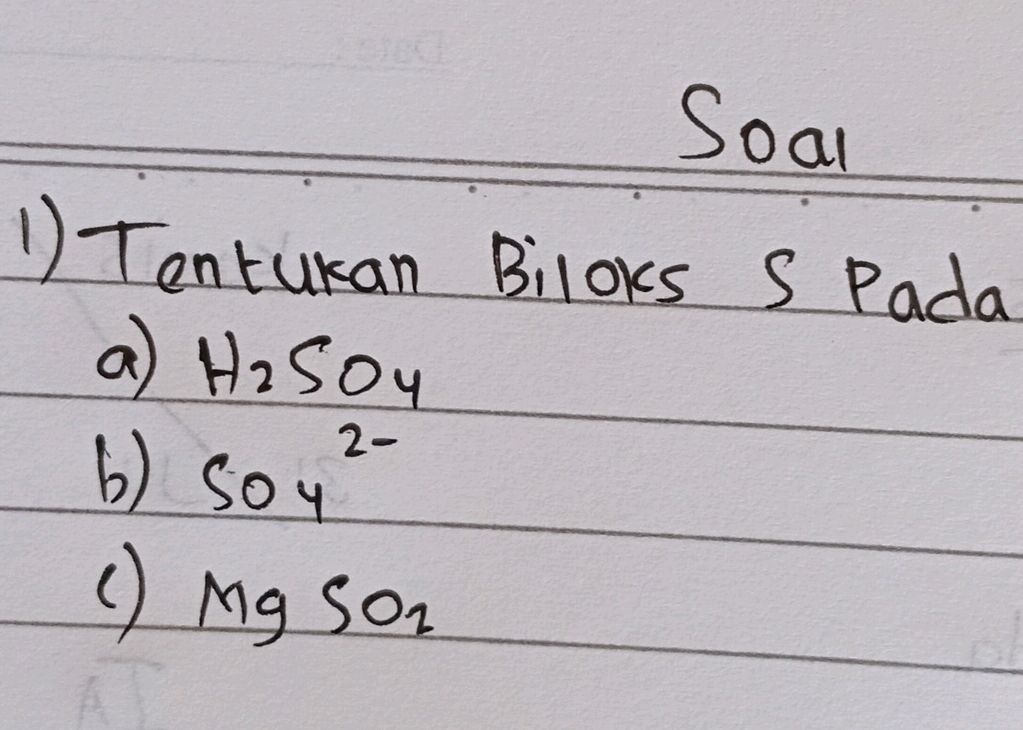 Soal
1) Tentukan Biloks S Pada
a) H₂SO₄
b) SO₄²⁻
c) MgSO₂